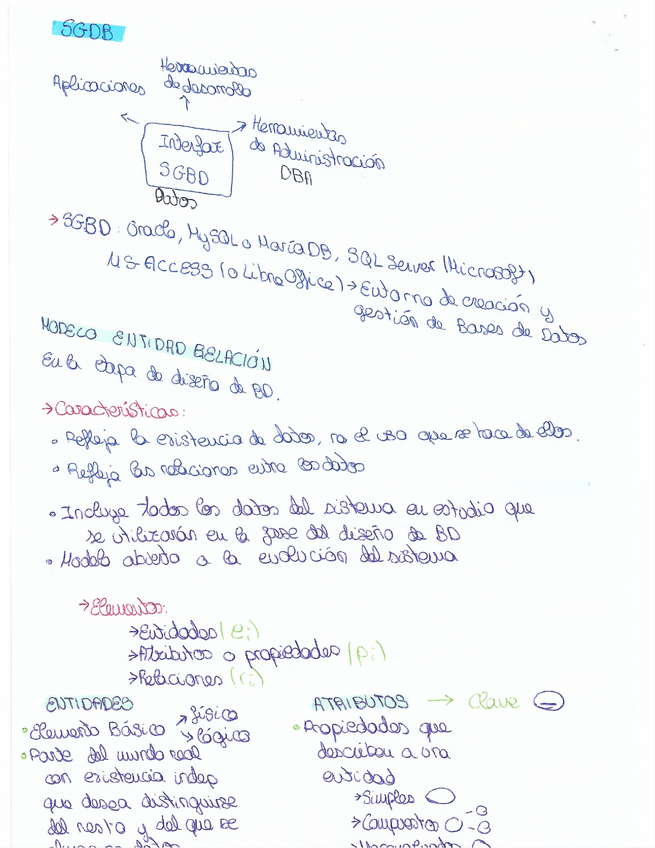 SGDB
Herramientas
de desarrollo
Aplicaciones
Interfaz
SGBD
Datos
Herramientas
de Administración
DBA
→ SGBD: Oracle, MySQL o MaríaDB, SQL Server (Microsoft)
MS-ACCESS (o LibreOffice) → Entorno de creación y
gestión de Bases de Datos
MODELO ENTIDAD RELACIÓN
En la etapa de diseño de BD.
→ Características:
• Refleja la existencia de datos, no el uso que se hace de ellos.
• Refleja las relaciones entre los datos
• Incluye todos los datos del sistema en estudio que
se utilizarán en la fase del diseño de BD
• Modelo abierto a la evolución del sistema
→ Elementos:
→ Entidades (ei)
→ Atributos o propiedades (pi)
→ Relaciones (ri)
ENTIDADES
• Elemento Básico → físico
→ lógico
• Parte del mundo real
con existencia indep
que desea distinguirse
del resto y del que se
ATRIBUTOS → Clave
• Propiedades que
describen a una
entidad
→ Simples
→ Compuestos